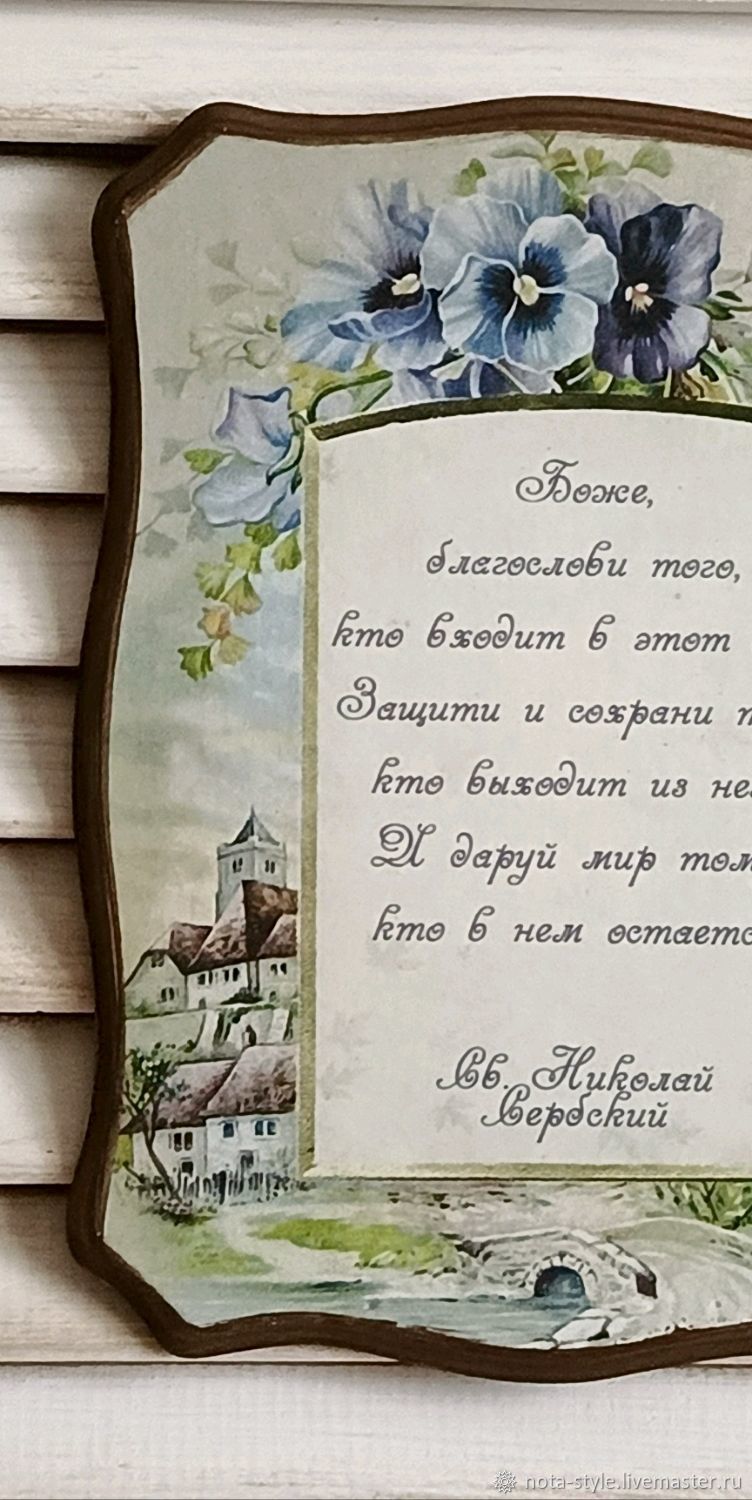 Боже,
благослови того,
кто входит в этот
Защити и сохрани т
кто выходит из не
И даруй мир том
кто в нем остаетс
Св. Николай
Сербский
nota-style.livemaster.ru